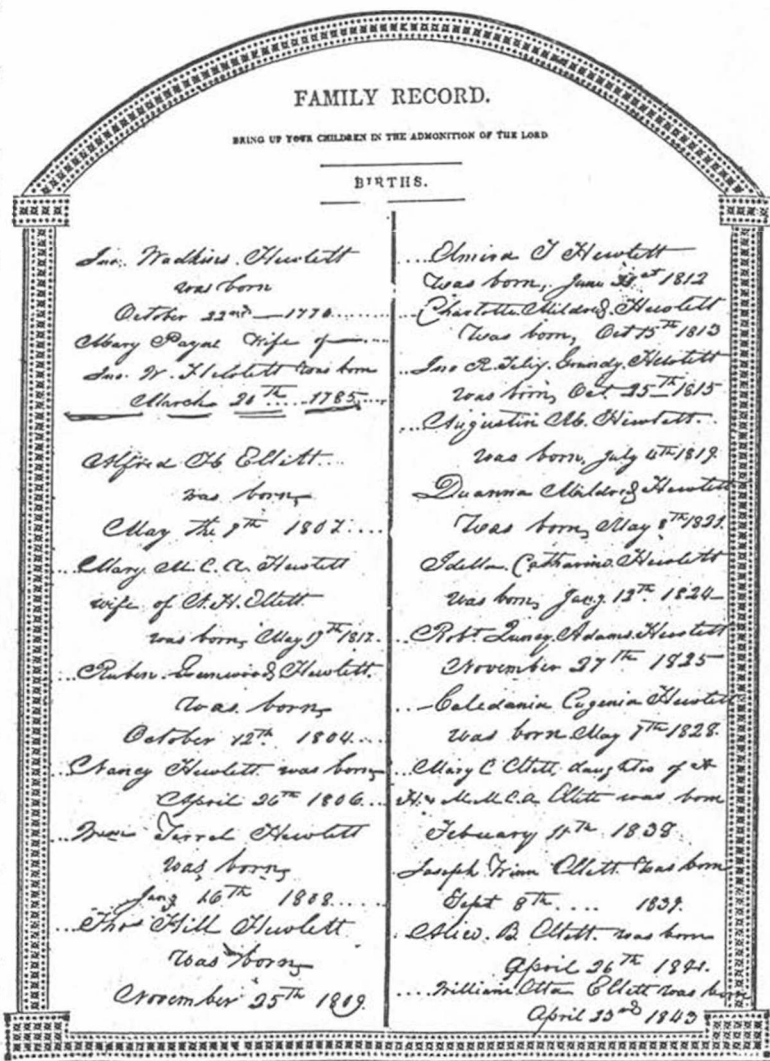 FAMILY RECORD.
BRING UP YOUR CHILDREN IN THE ADMONITION OF THE LORD
BIRTHS.
Jno. Wadkins Hewlett
was born
October 22nd 1770
Mary Payne Wife of
Jno. W. Hewlett was born
March 20th 1785
Alfred H Ellett
was born,
May the 9th 1807
Mary M. C. A. Hewlett
wife of A. H. Ellett
was born, May 17th 1812
Ruben Greenwood Hewlett
was born,
October 12th 1804
Nancy Hewlett was born,
April 26th 1806
Terrel Hewlett
was born,
Jany 16th 1808
Thos Hill Hewlett
was born,
November 25th 1809
Elmira T Hewlett
was born, June 1812
Charlotte Mildred Hewlett
Was born, Oct 15th 1813
Jno R. Felix Grundy Hewlett
was born, Oct. 25th 1815
Augustin M. Hewlett
was born, July 4th 1819
Duanna Mildred Hewlett
Was born, May 8th 1821
Idella Catharine Hewlett
was born, Jany 12th 1824
Robt Quncy Adams Hewlett
November 27th 1825
Caledania Eugenia Hewlett
was born May 7th 1828
Mary C Ellett, daughter of A
H. & M. M. C. A. Ellett was born
February 11th 1838
Joseph Winn Ellett was born
Sept 8th 1839
Alice B. Ellett was born
April 26th 1841
William Otta Ellett was born
April 23rd 1843